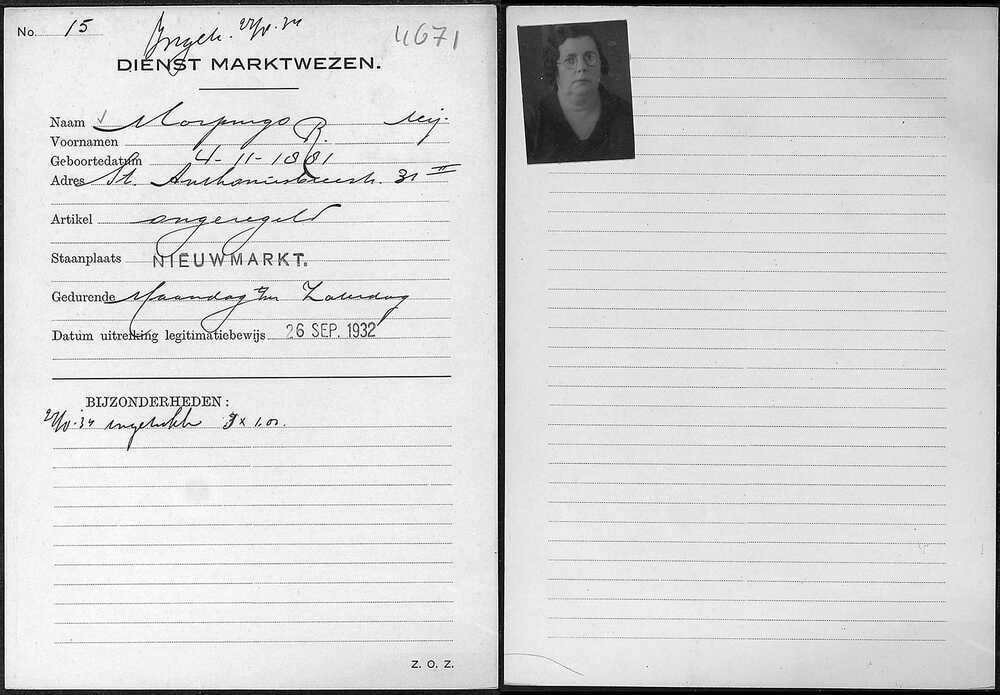 No. 15 Ingetr. 4671
DIENST MARKTWEZEN.
Naam Morpurgo Mej.
Voornamen R.
Geboortedatum 4-11-1881
Adres St. Anthoniesbreestr. 31 II
Artikel ongeregeld
Staanplaats NIEUWMARKT.
Gedurende Maandag t/m Zaterdag
Datum uitreiking legitimatiebewijs 26 SEP. 1932
BIJZONDERHEDEN :
ingetrokken 3 x 1.00.
Z. O. Z.